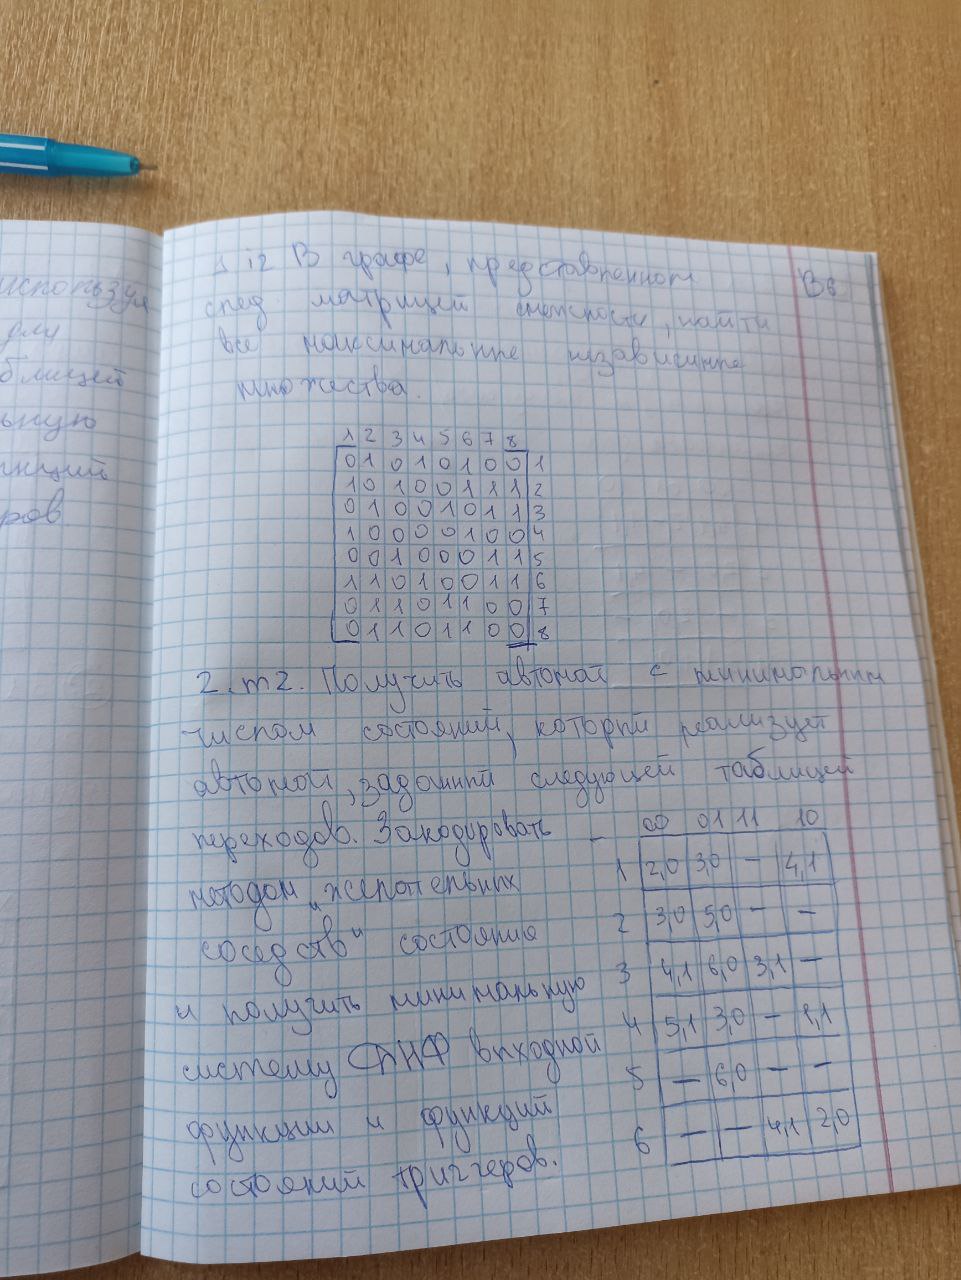 используя
блицей
ьную
нкций
ров
1. i2 В графе, представленном
В6
след матрицей смежности, найти
все максимальные независимые
множества.
1 2 3 4 5 6 7 8
0 1 0 1 0 1 0 0 1
1 0 1 0 0 1 1 1 2
0 1 0 0 1 0 1 1 3
1 0 0 0 0 1 0 0 4
0 0 1 0 0 0 1 1 5
1 1 0 1 0 0 1 1 6
0 1 1 0 1 1 0 0 7
0 1 1 0 1 1 0 0 8
2. m2. Получить автомат с минимальным
числом состояний, который реализует
автомат, заданный следующей таблицей
переходов. Закодировать
методом „желательных
соседств“ состояние
и получить минимальную
систему ДНФ выходной
функции и функций
состояний триггеров.
– 00 01 11 10
1 2,0 3,0 – 4,1
2 3,0 5,0 – –
3 4,1 6,0 3,1 –
4 5,1 3,0 – 1,1
5 – 6,0 – –
6 – – 4,1 2,0